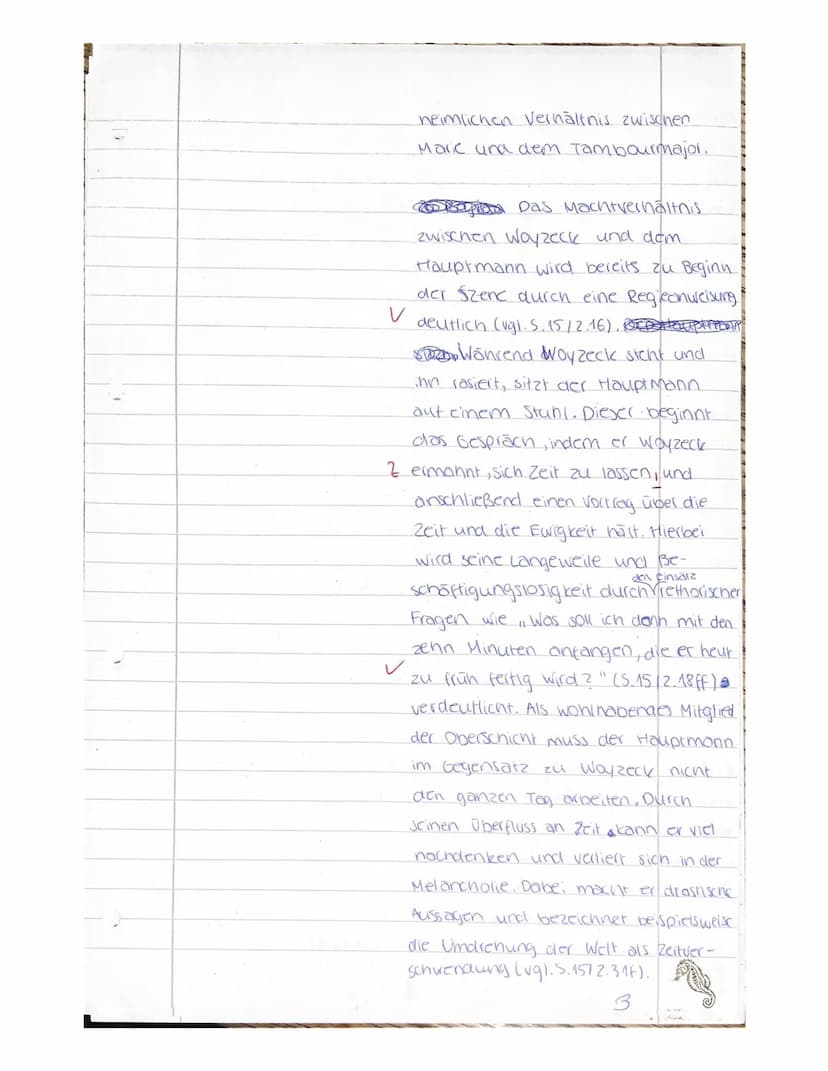 heimlichen Verhältnis zwischen
Marie und dem Tambourmajor.
Das Machtverhältnis
zwischen Woyzeck und dem
Hauptmann wird bereits zu Beginn
der Szene durch eine Regieanweisung
deutlich (vgl. S. 15 / Z. 16).
Während Woyzeck steht und
ihn rasiert, sitzt der Hauptmann
auf einem Stuhl. Dieser beginnt
das Gespräch, indem er Woyzeck
Z ermahnt, sich Zeit zu lassen, und
anschließend einen Vortrag über die
Zeit und die Ewigkeit hält. Hierbei
wird seine Langeweile und Be-
den Einsatz
schäftigungslosigkeit durch rethorischer
Fragen wie „Was soll ich dann mit den
zehn Minuten anfangen, die er heut
zu früh fertig wird?" (S. 15 / Z. 18ff)
verdeutlicht. Als wohlhabendes Mitglied
der Oberschicht muss der Hauptmann
im Gegensatz zu Woyzeck nicht
den ganzen Tag arbeiten. Durch
seinen Überfluss an Zeit kann er viel
nachdenken und verliert sich in der
Melancholie. Dabei macht er drastische
Aussagen und bezeichnet beispielsweise
die Umdrehung der Welt als Zeitver-
schwendung (vgl. S. 15 / Z. 31f).
3